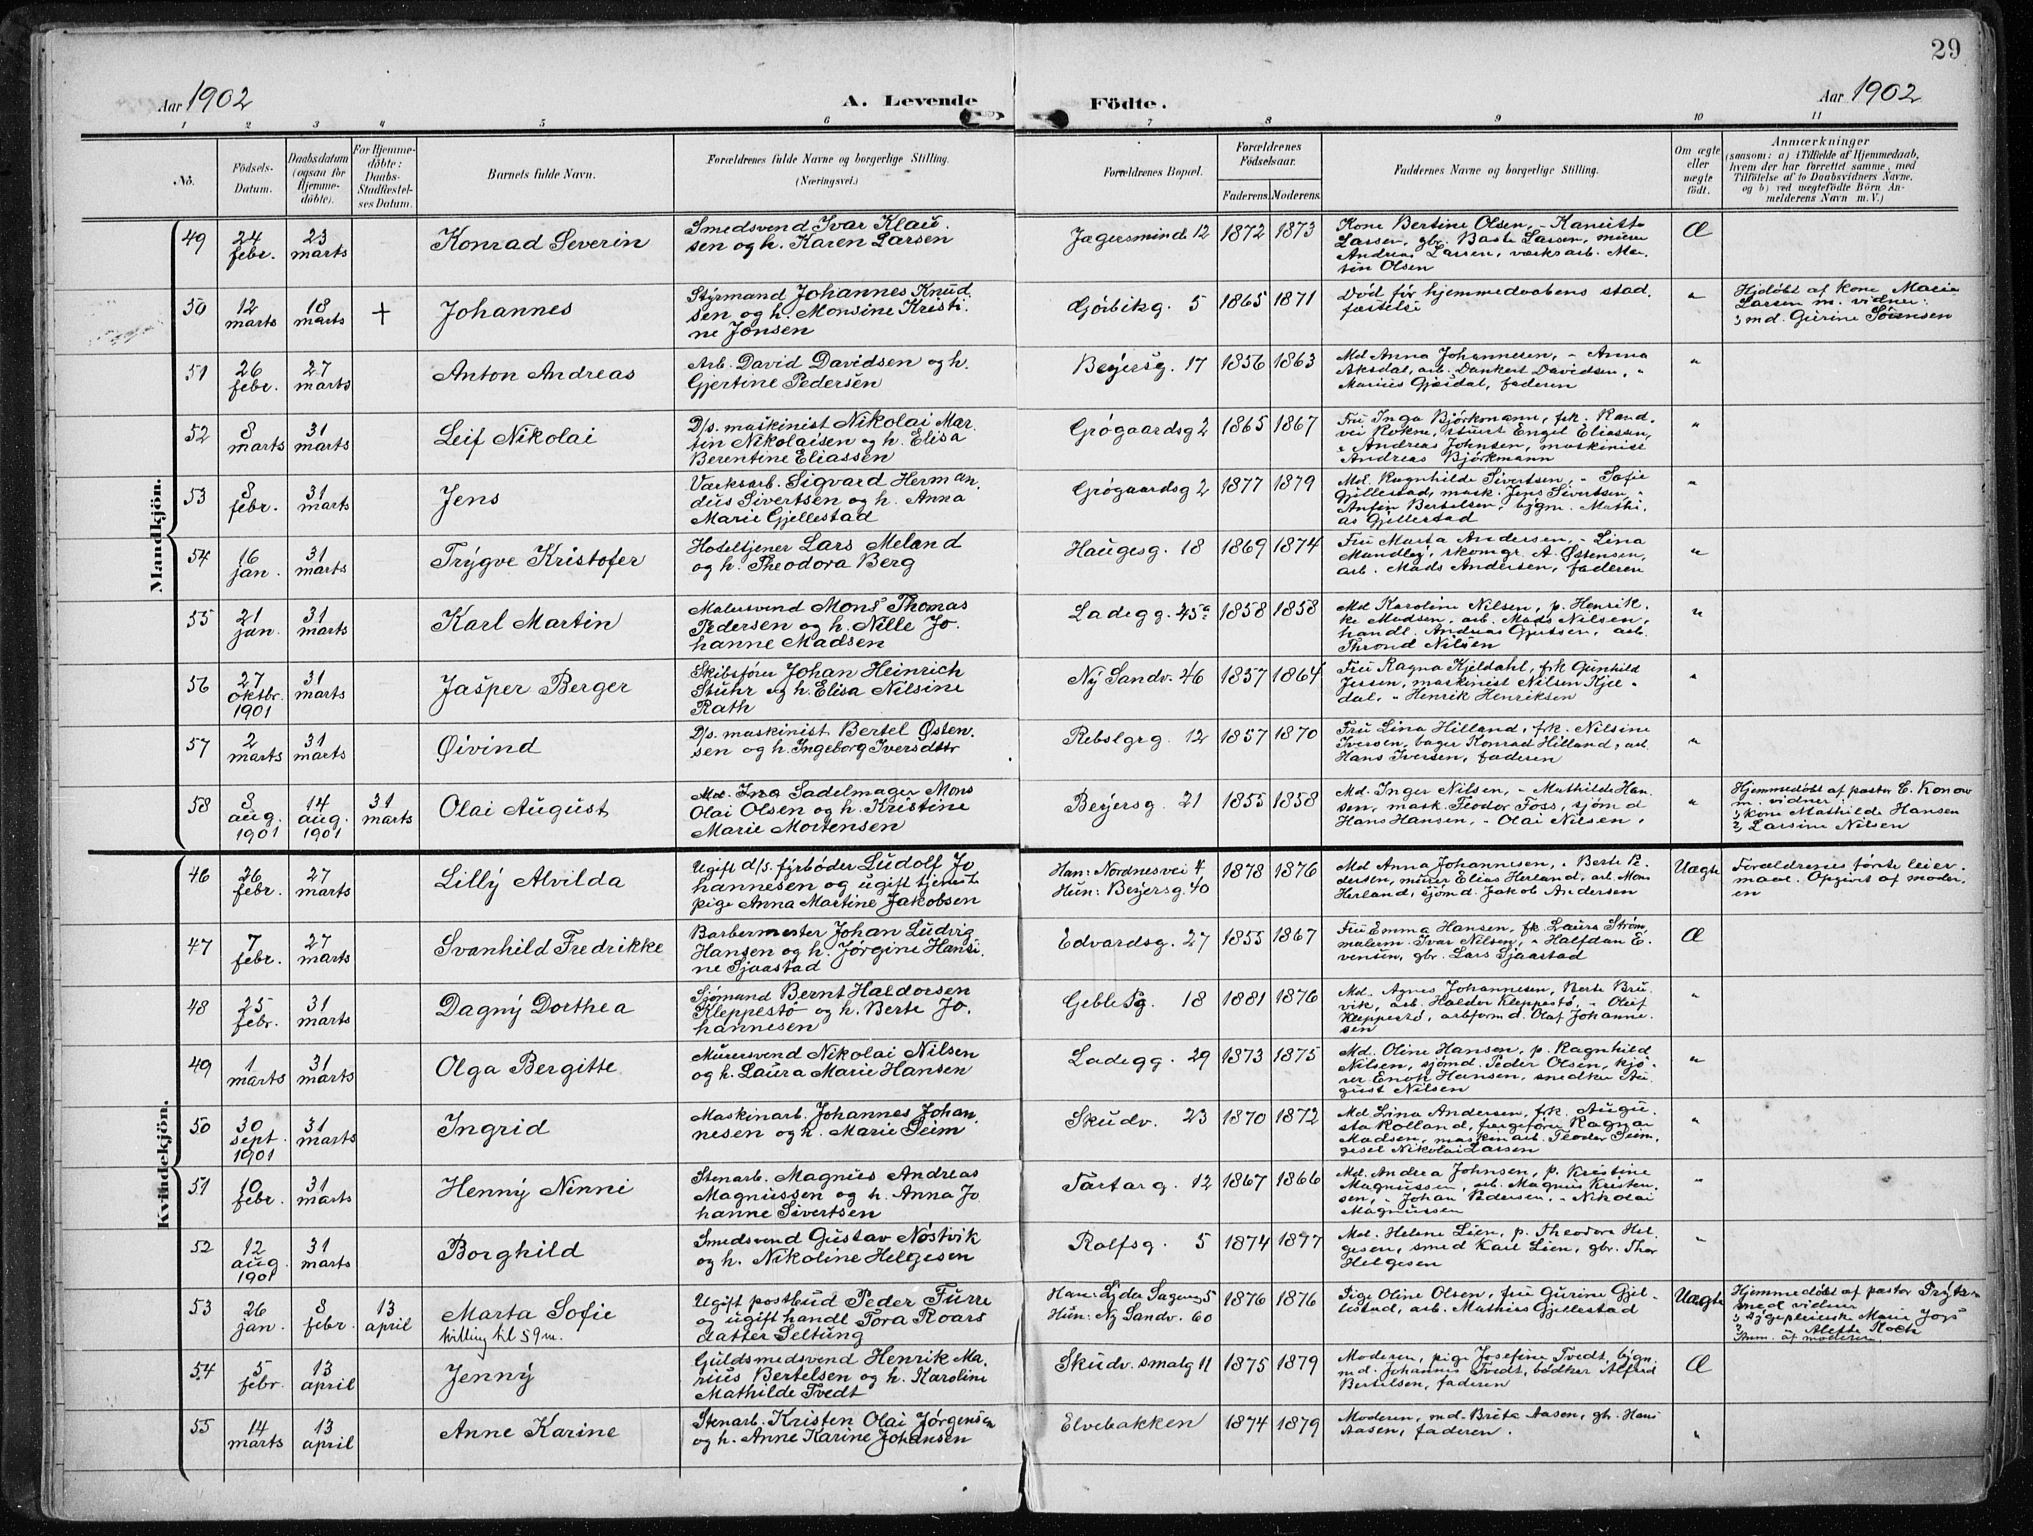 29
Aar 1902 A. Levende Födte. Aar 1902
1 2 3 4 5 6 7 8 9 10 11
No. Födsels-Datum. Daabsdatum (ogsaa for Hjemmedöbte). For Hjemmedöbte: Daabs-Stadfæstelses Datum. Barnets fulde Navn. Forældrenes fulde Navne og borgerlige Stilling. (Næringsvei.) Forældrenes Bopæl. Forældrenes Födselsaar. Faderens. Moderens. Faddernes Navne og borgerlige Stilling. Om ægte eller uægte födt. Anmærkninger (saasom: a) i Tilfælde af Hjemmedaab, hvem der har forrettet samme, med Tilföielse af to Daabsvidners Navne, og b) ved uægtefödte Börn Anmelderens Navn m. V.)
Mandkjön.
49 24 febr. 23 marts Konrad Severin
Smedsvend Ivar Klau-
sen og h. Karen Larsen
Jægersminde 12 1872 1873
Kone Bertine Olsen, –
Larsen, gbr. Larsen, murer
Andreas Larsen, værksarb. Mar-
tin Olsen
Æ
50 12 marts 18 marts + Johannes
Styrmand Johannes Knud
sen og h. Monsine Kristi
ne Jonsen
Gjørbiksg. 5 1865 1871
Død før hjemmedaabens stad
fæstelse
"
Hjdøbt af kone Marie
Larsen m. vidner:
md. Gurine Sørensen
51 26 febr. 27 marts Anton Andreas
Arb. David Davidsen og h.
Gjertine Pedersen
Beyersg. 17 1856 1863
Md Anna Johannesen, – Anna
Aksdal, arb. Dankert Davidsen, "
Marius Gjesdal, faderen
"
52 8 marts 31 marts Leif Nikolai
D/s. maskinist Nikolai Mar
tin Nikolaisen og h. Elisa
Berentine Eliassen
Grøgaardsg 2 1865 1867
Fru Inga Bjørkmann, frk. Rand-
vei Kokne, stuert Engel Eliassen,
" Andreas Johnsen, maskinist
Andreas Bjørkmann
"
53 8 febr. 31 marts Jens
Værksarb. Sigvard Herman
dus Sivertsen og h. Anna
Marie Gjellestad
Grøgaardsg 2 1877 1879
Md. Ragnhilde Sivertsen, – Sofie
Gjellestad, mask. Jens Sivertsen, "
Anfin Bertelsen, bygm. Mathi
as Gjellestad
"
54 16 jan. 31 marts Trygve Kristofer
Hoteltjener Lars Meland
og h. Theodora Berg
Haugesg. 18 1869 1874
Fru Marta Andersen, – Lina
skomgr. A. Østensen,
arb. Mads Andersen, faderen
"
55 21 jan. 31 marts Karl Martin
Malersvend Mons Thomas
Pedersen og h. Nille Jo
hanne Madsen
Ladegg. 45a 1858 1858
Md Karoline Nilsen, p. Henrik-
ke Madsen, arb. Mads Nilsen,
handl. Andreas Gjertsen, arb.
Thrond Nilsen
"
56 27 oktbr. 1901 31 marts Jasper Berger
Skibsfører Johan Heinrich
Stuhr og h. Elisa Nilsine
Rath
Ny Sandv. 46 1857 1864
Fru Ragna Kjeldahl, frk Gunhild
Jersen, maskinist Nilsen Kjel-
dal, " Henrik Henriksen
"
57 2 marts 31 marts Øivind
D/s. maskinist Bertel Østen.
sen og h. Ingeborg Iversdttr
Rebslgrg. 12 1857 1870
Fru Lina Hilland, frk. Nilsine
Iversen, bager Konrad Hilland, arb.
Hans Iversen, faderen
"
58 8 aug. 1901 14 aug. 1901 31 marts Olai August
Sadelmager Mons
Olai Olsen og h. Kristine
Marie Mortensen
Beyersg. 21 1855 1858
Md. Inger Nilsen, – Mathilde Han
sen, mask. Teodor Foss, sjømd
Hans Hansen, – Olai Nilsen.
"
Hjemmedøbt af pastor E. Konow
m. vidner:
1, kone Mathilde Hansen
2, Larsine Nilsen
Kvindekjön.
46 26 febr. 27 marts Lilly Alvilda
Ugift d/s. fyrbøder Ludolf Jo
hannesen og ugift tjeneste
pige Anna Martine Jakobsen
Han: Nordnesvei 4
Hun: Beyersg. 40 1878 1876
Md Anna Johannesen, – Berte P
dersen, murer Elias Herland, arb. Mons
Herland, sjømd. Jakob Andersen
Uægte
Forældrenes første leier-
maal. Opgivet af moder.
en
47 7 febr. 27 marts Svanhild Fredrikke
Barbermester Johan Ludvig
Hansen og h. Jørgine Hansi
ne Sjaastad
Edvardsg. 27 1855 1867
Fru Emma Hansen, fk. Laura Strøm,
malerm. Ivar Nilsen, – Halfdan E-
vensen, gbr. Lars Sjaastad
Æ
48 25 febr. 31 marts Dagny Dorthea
Sjømand Bernt Haldorsen
Kleppestø og h. Berte Jo.
hannesen
Geblesg. 18 1881 1876
Md. Agnes Johannesen, Berte Bru
vik, arb. Haldor Kleppestø, – Oluf
Kleppestø, arbformd. Olaf Johanne-
sen
"
49 1 marts 31 marts Olga Bergitte
Murersvend Nikolai Nilsen
og h. Laura Marie Hansen
Ladegg. 29 1873 1875
Md. Oline Hansen, p. Ragnhild
Nilsen, sjømd. Peder Olsen, kjø-
rer Enok Hansen, snedker Au-
gust Nilsen
"
50 30 sept. 1901 31 marts Ingrid
Maskinarb. Johannes Johan
nesen og h. Marie Seim
Skudv. 23 1870 1872
Md Lina Andersen, frk. Augu-
sta Rolland, færgefører Ragnar
Madsen, maskinarb. Teodor Seim,
gesel Nikolai Larsen
"
51 10 febr. 31 marts Henny Ninni
Stenarb. Magnus Andreas
Magnussen og h. Anna Jo
hanne Sivertsen
Tartarg. 12 1867 1866
Md. Andrea Johnsen, p. Kristine
Magnussen, arb. Magnus Kristen.
sen, – Johan Pedersen, – Nikolai
Magnussen
"
52 12 aug. 1901 31 marts Borghild
Smedsvend Gustav Nøstvik
og h. Nikoline Helgesen
Rolfsg. 5 1874 1877
Md. Helene Lien, p. Theodora Hel-
gesen, smed Karl Lien, gbr. Thor
Helgesen
"
53 26 jan. 8 febr. 13 april Marta Sofie
tvilling til 59 m.
Ugift postbud Peder Furre
og ugift handl Tora Roars
datter Seltung
Han: 5
Hun: Ny Sandv. 60 1876 1876
Pige Oline Olsen, fru Gurine Gjel-
lestad, arb. Mathias Gjellestad
Uægte
Hjemmedøbt af pastor
med vidner
1, sygepleierske Marie
2, Alette Koch
Anm. af moderen
54 5 febr. 13 april Jenny
Guldsmedsvend Henrik Ma.
rius Bertelsen og h. Karoline
Mathilde Tvedt
Skudv. smalg 11 1875 1879
Moderen, pige Josefine Tvedt, bygn.
md. Johannes Tvedt, bødker Alfred
Bertelsen, faderen
Æ
55 14 marts 13 april Anne Karine
Stenarb. Kristen Olai Jørgensen
og h. Anne Karine Johansen
Elvebakken 1874 1879
Moderen, md. Brita Aasen, gh. Hans
Aasen, faderen.
"